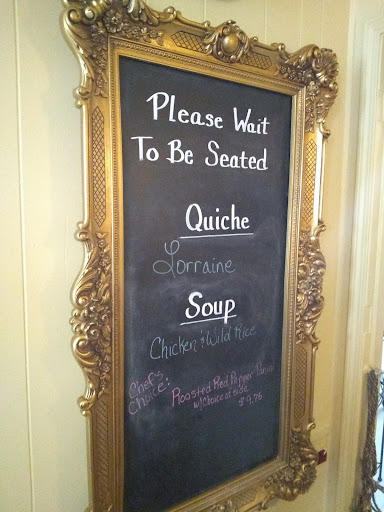 Please Wait
To Be Seated
Quiche
Lorraine
Soup
Chicken & Wild Rice
Chef's Choice:
Roasted Red Pepper Panini
w/Choice of side
$9.75